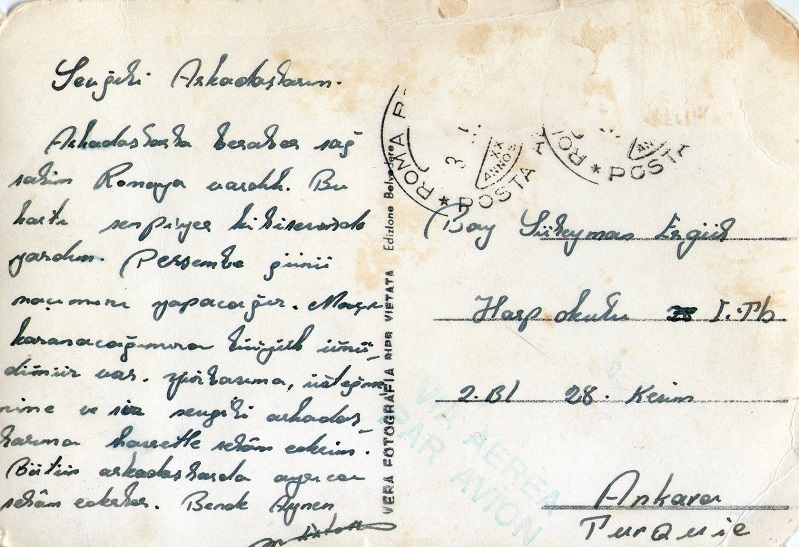 Sevgili Arkadaşlarım.
Arkadaşlarla beraber sağ
salim Romaya vardık. Bu
kartı senpiyer kilisesinde
yazdım. Perşembe günü
maçımızı yapacağız. Maçı
kazanacağımıza büyük ümü-
dümüz var. yüzbaşıma, üsteğme-
nime ve siz sevgili arkadaş-
larıma hasretle selâm ederim.
Bütün arkadaşlarda ayrıca
selâm ederler. Benek Aynen
VERA FOTOGRAFIA RIPR VIETATA Edizione Belvedere
ROMA P
POSTA A
ANNO
XX
3
RO
POSTA
Bay Süleyman Ergül
Harp okulu I. Tb
2. Bl 28. Kısım
Ankara
Turquie
VIA AEREA
PAR AVION